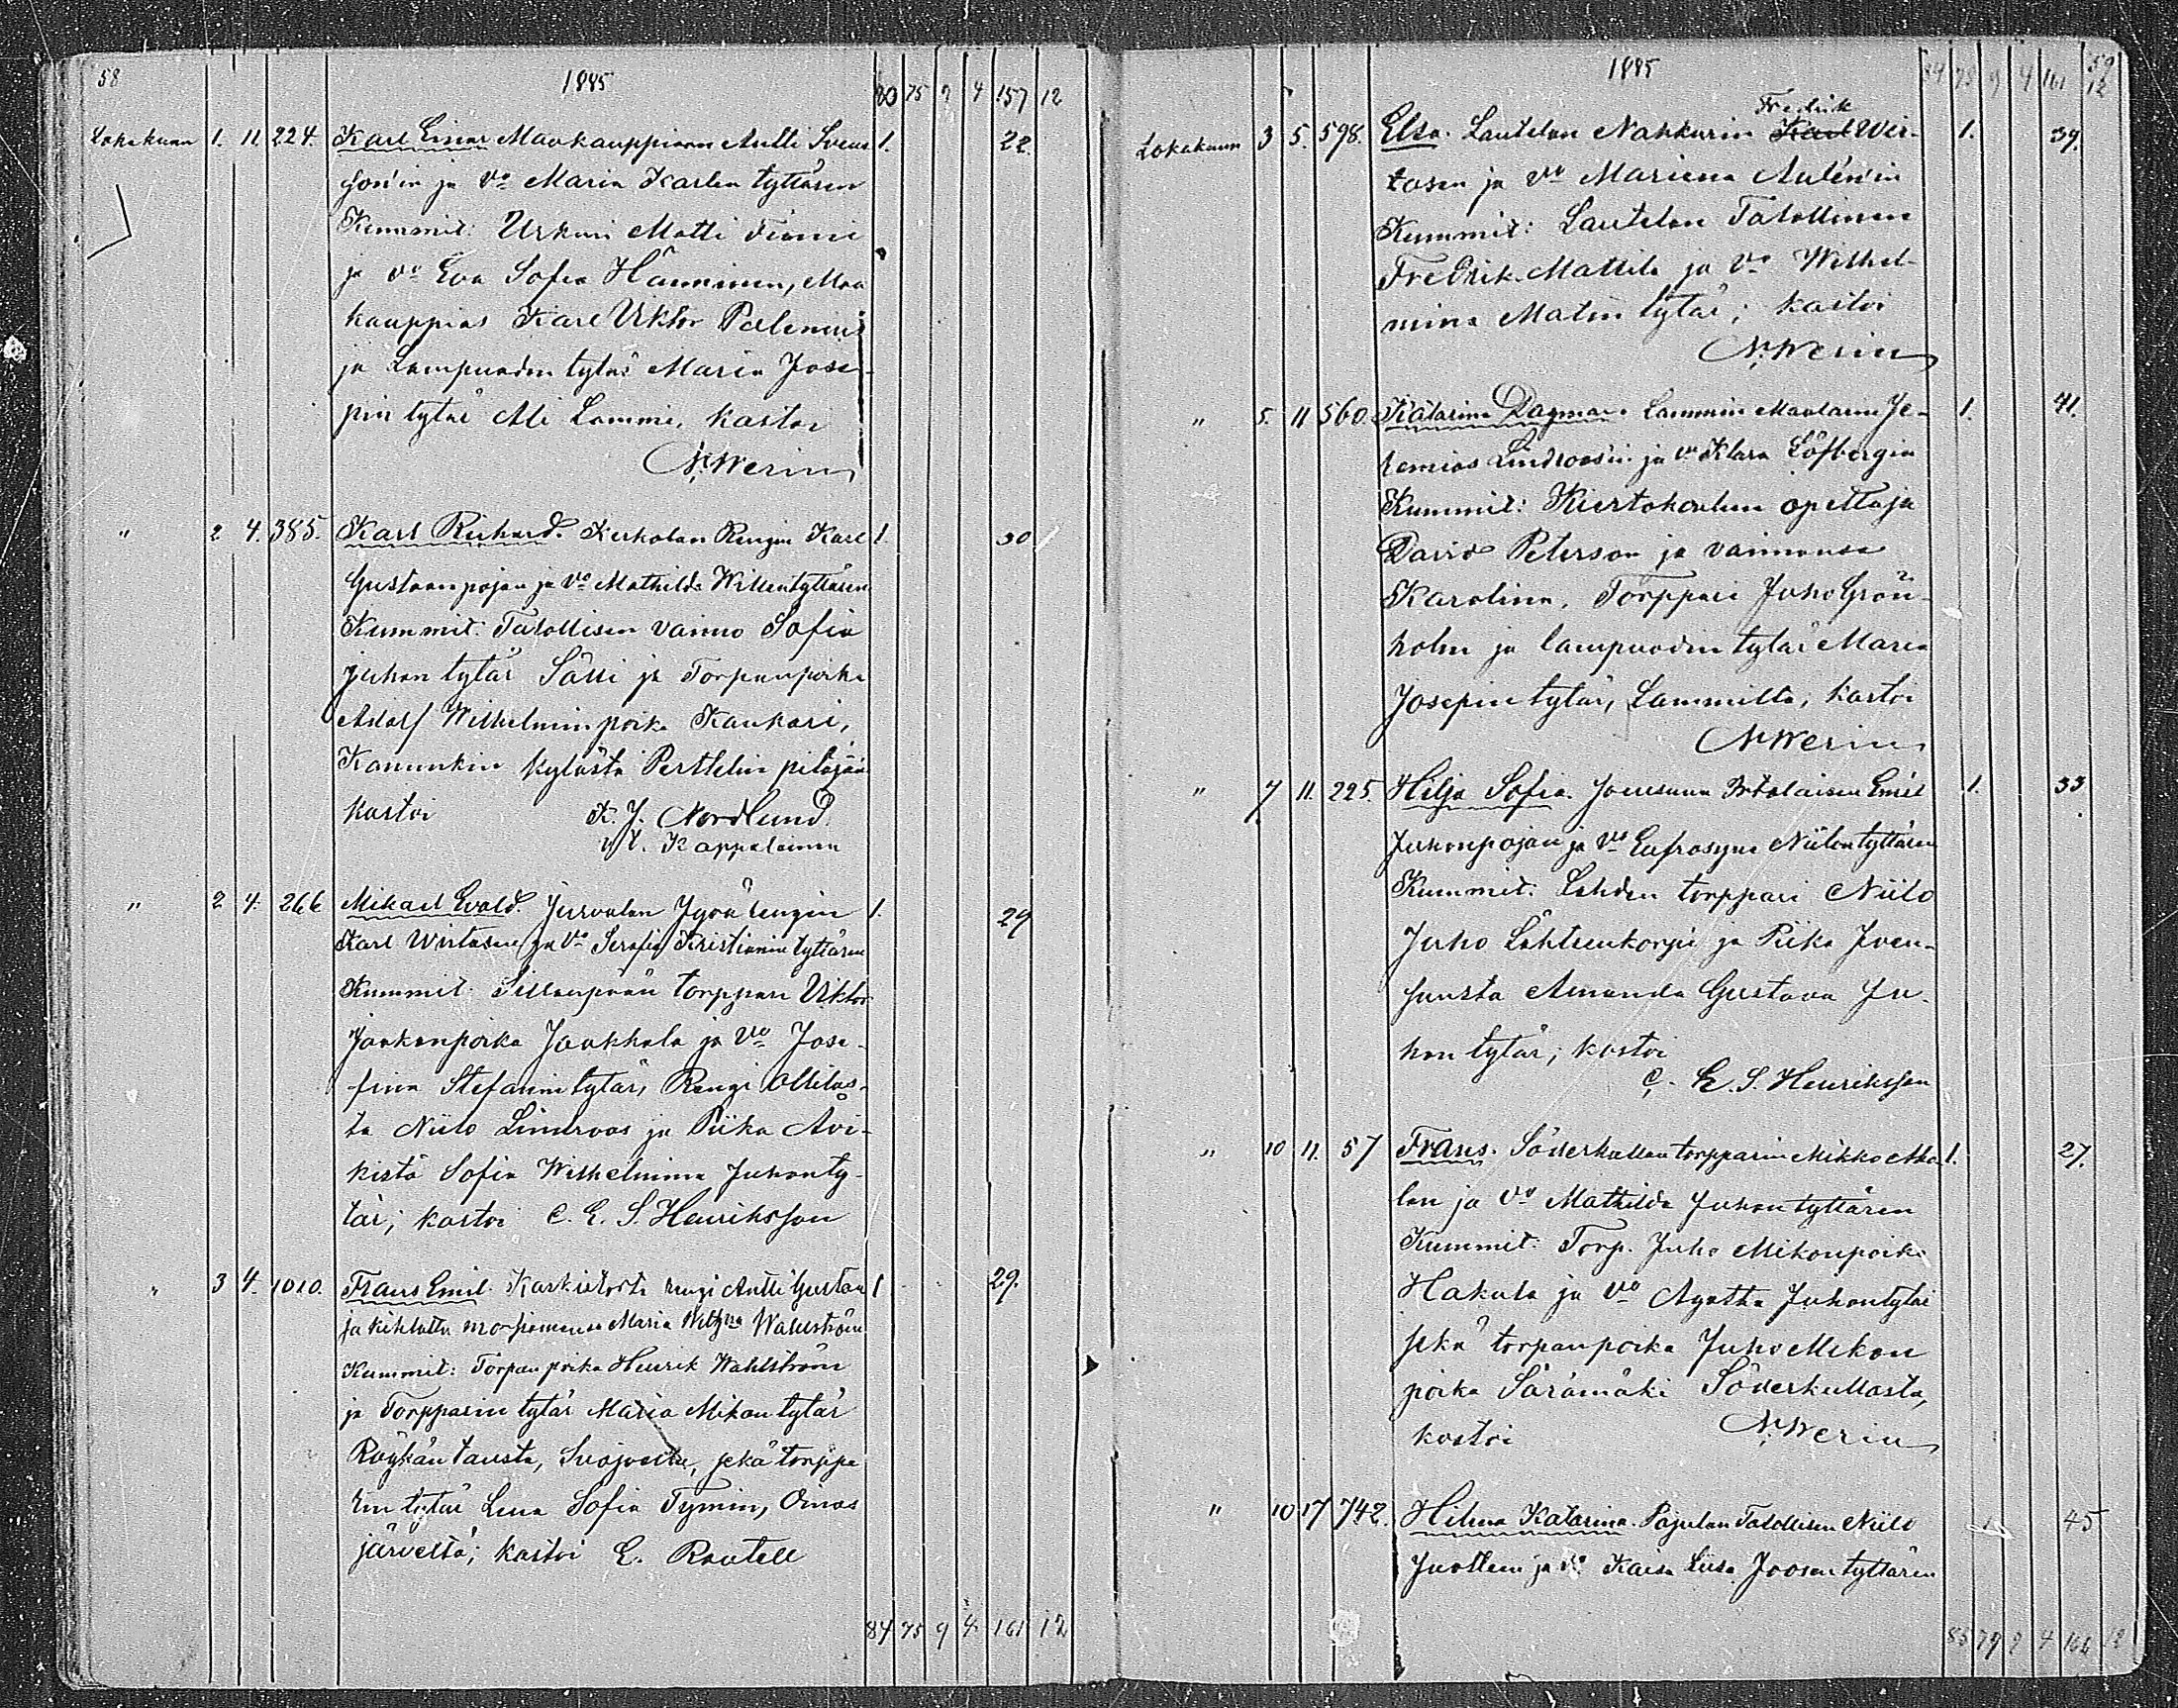 58
1885
80 75 9 4 157 12
Lokakuun 1. 11. 224. Karl Einar Maakauppiaan Antti Svens 1. 22.
son'in ja vo Maria Karlen tyttären
Kummit: Urkuri Matti
ja vo Eva Sofia Hänninen, Maa
kauppias Karl Viktor Palenius
ja Lampuodin tytär Maria Jose-
pin tytär Ali Lammi, kastoi
N. Werin
" 2 4. 385. Karl Richard. Kerkolan Rengin Karl 1. 30
Gustaanpojan ja vo Mathilda Willentyttären
Kummit: Talollisen vaimo Sofia
Juhon tytär Sälli ja Torpanpoika
Adolf Wilhelminpoika Kaukari,
Kanunkin kylästä Perttelin pitäjää
kastoi K. J. Nordlund
v. t. Kappalainen
" 2 4. 266 Mikael Evald. Juvvalan Jyrä rengin 1. 29
Karl Wirtasen ja vo Serafia Kristianin tyttären
Kummit: Sillanpään torppari Viktor
Jaakonpoika Jaakkola ja vo Jose-
fina Stefanintytär, Rengi Ollilas-
ta Niilo Lindroos ja Piika Avi-
kistä Sofia Wilhelmina Juhonty-
tär; kastoi C. E. S. Henriksson
" 3 4. 1010. Frans Emil. Kaskistosta rengi Antti Gustan 1 29.
ja kihlattu morsiamensa Maria Wilhna Wahlström
Kummit: Torpanpoika Henrik Wahlström
ja Torpparin tytär Maria Mikon tytär
Röykäntausta, Suojoelta, sekä torppa
rin tytär Lena Sofia Tymin, Oinas
järveltä; kastoi E. Rautell
84 75 9 4. 161 12
1885
84 75 9 4 161 59
12
Fredrik
Lokakuun 3 5. 598. Elsa. Lautelan Nahkurin Karl Wir- 1. 39.
tasen ja vo Mariena Aulén'in
Kummit: Lautelan Talollinen
Fredrik Mattila ja vo Wilhel-
mina Matintytär; kastoi
N. Werin
" 5. 11 560. Katarina Dagmar. Lammin Maalarin Je- 1. 41.
remias Lindroos'in ja vo Klara Löfbergin
Kummit: Kiertokoulun opettaja
David Peterson ja vaimonsa
Karolina, Torppari Juho Grön-
holm ja lampuodin tytär Maria
Josepin tytär, Lammilta; kastoi
N. Werin
" 7 11. 225. Hilja Sofia. Joensuun Itsolaisen Emil 1. 33
Juhonpojan ja vo Eufrosyne Niilontyttären
Kummit: Lahden torppari Niilo
Juho Lähteenkorpi ja Piika Joen-
suusta Amanda Gustava Ju-
hon tytär; kastoi
C. E. S. Henriksson
" 10 11. 57 Frans. Söderkullan torpparin Mikko Aho 1. 27.
lan ja vo Mathilda Juhontyttären
Kummit: Torp. Juho Mikonpoika
Hakula ja vo Agatha Juhontytär
sekä torpanpoika Juho Mikon
poika Särämäki Söderkullasta,
kastoi N. Werin
" 10 17 742. Hilma Katarina. Pajulan Talollisen Niilo 1. 45
Juollen ja vo Kaisa Liisa Joosentyttären
85 79 9 4 164 12